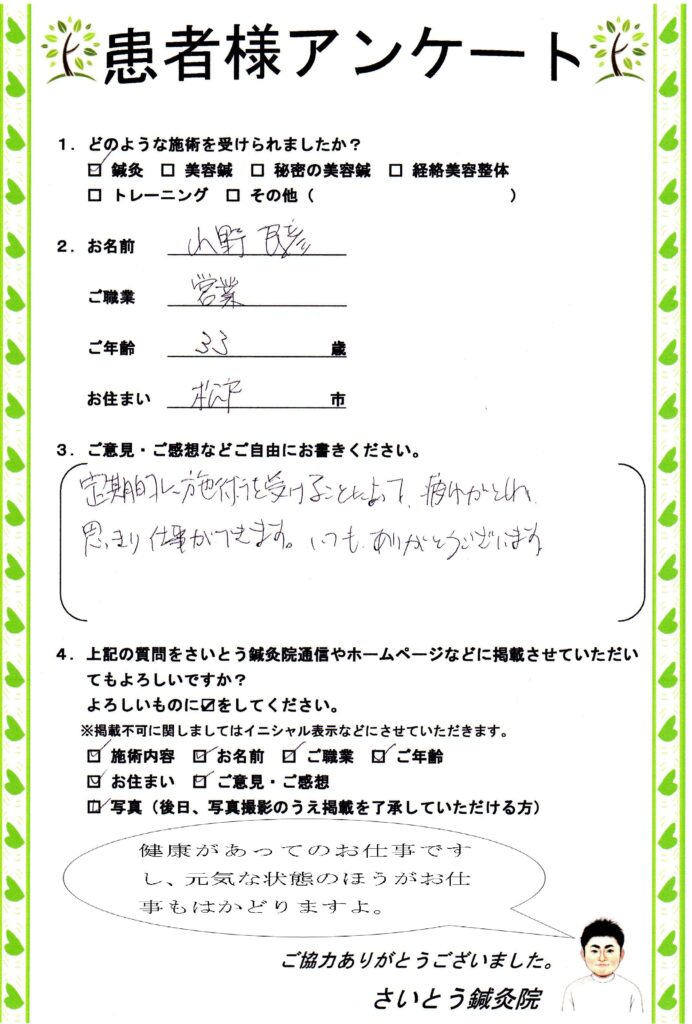 患者様アンケート
1．どのような施術を受けられましたか？
☑ 鍼灸 □ 美容鍼 □ 秘密の美容鍼 □ 経絡美容整体
□ トレーニング □ その他（ ）
2．お名前 小野 民彦
ご職業 営業
ご年齢 33 歳
お住まい 松戸 市
3．ご意見・ご感想などご自由にお書きください。
定期的に施術を受けることによって、疲れがとれ、
思いきり仕事ができます。いつも、ありがとうございます。
4．上記の質問をさいとう鍼灸院通信やホームページなどに掲載させていただい
てもよろしいですか？
よろしいものに☑をしてください。
※掲載不可に関しましてはイニシャル表示などにさせていただきます。
☑ 施術内容 ☑ お名前 ☑ ご職業 ☑ ご年齢
☑ お住まい ☑ ご意見・ご感想
☑ 写真（後日、写真撮影のうえ掲載を了承していただける方）
健康があってのお仕事です
し、元気な状態のほうがお仕
事もはかどりますよ。
ご協力ありがとうございました。
さいとう鍼灸院